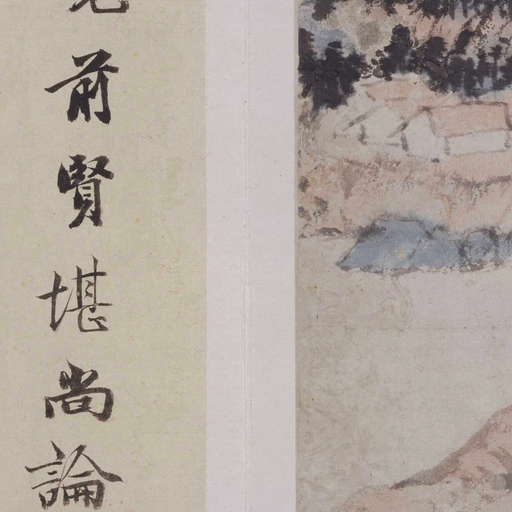 前賢堪尚論